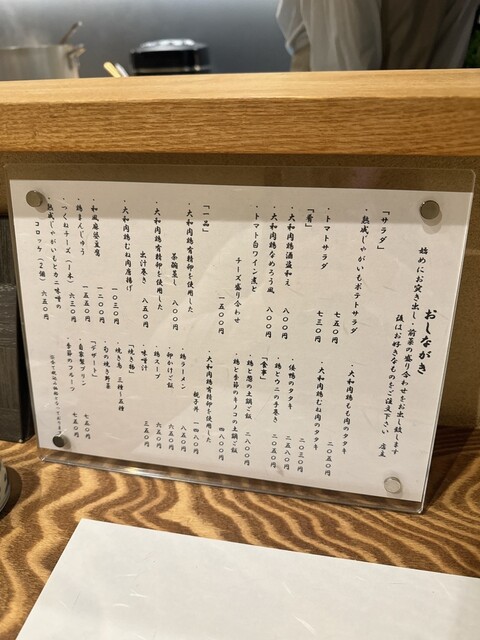 おしながき
始めにお突き出し、前菜の盛り合わせをお出し致します
後はお好きなものをご注文下さい 店主
「サラダ」
・熟成じゃがいもポテトサラダ
七五〇円
・トマトサラダ
七三〇円
「肴」
・大和肉鶏酒盗和え
八〇〇円
・大和肉鶏なめろう風
八〇〇円
・トマト白ワイン煮と
チーズ盛り合わせ
一五〇〇円
「一品」
・大和肉鶏有精卵を使用した
茶碗蒸し 八〇〇円
・大和肉鶏有精卵を使用した
出汁巻き 八五〇円
・大和肉鶏むね肉唐揚げ
一〇三〇円
・和風麻婆豆腐
一二〇〇円
・鶏まんじゅう
一五五〇円
・つくねチーズ(一本)
六三〇円
・熟成じゃがいもとカニ味噌の
コロッケ(2個) 六五〇円
・大和肉鶏もも肉のタタキ
二〇五〇円
・大和肉鶏むね肉のタタキ
二〇三〇円
・倭鴨のタタキ
二五八〇円
・鶏とウニの手巻き
二〇五〇円
「食事」
・鶏と葱の土鍋ご飯
二八〇〇円
・鶏と季節のキノコの土鍋ご飯
・大和肉鶏有精卵を使用した
親子丼 一四八〇円
・鶏ラーメン
八五〇円
・卵かけご飯
六五〇円
・鶏スープ
六五〇円
・味噌汁
三五〇円
「焼き物」
・焼き鳥 三種~五種
・旬の焼き野菜
「デザート」
・自家製プリン
七五〇円
・季節のフルーツ
七五〇円